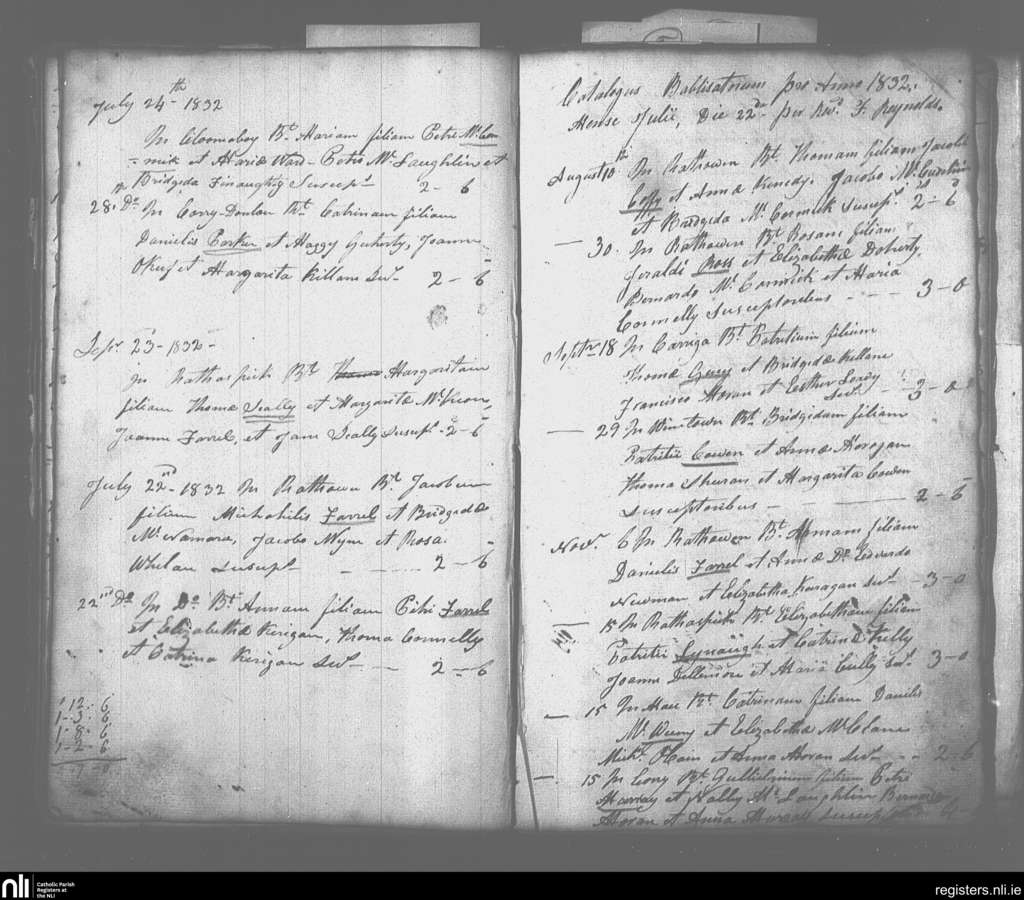 July 24th 1832
In Cloomaboy Bt. Mariam filiam Petri McCon
=mik et Mariæ Ward - Petro McLaughlin et
Bridgida Finaughty Suscept 2 - 6
28. Do In Corry-Donlon Bt. Catrinam filiam
Danielis Parker et Haggy Guherty, Joanne
et Margarita Killam Sus. 2 - 6
Sepr 23 - 1832 -
In Rathaspick Bt. Margaritam
filiam Thomæ Scally et Margaritæ McKeon,
Joanne Farrel, et Jam Scally Suscept. 2 - 6
July 22nd - 1832 In Rathowen Bt. Jacobum
filium Michahilis Farrel et Bridgidæ
McNamara, Jacobo Wynn et Rosa
Whelan Suscept 2 - 6
22nd Do In Do. Bt. Annam filiam Petri Farrel
et Elizabethæ Kerigan, Thoma Connelly
et Catrina Kerigan Sus. 2 - 6
1 12. 6
1 - 3. 6
1. 8. 6
1 - 2 - 6
Catalogus Babtisatorum pro Anno 1832.
Mense Julii, Die 22da per Revd. F. Reynolds.
August 10th In Rathowen Bt. Thomam filium Jacobi
et Annæ Kenedy, Jacobo McGuckin
et Bridgida McCormick Suscept. 2 - 6
30. In Rathowen Bt. Rosam filiam
Jeraldi Ross et Elizabethæ Doherty,
Bernardo McCormick et Maria
Connelly Susceptoribus - - - 3 - 0
Septr 18 In Carriga Bt. Patritium filium
Thomæ Geray et Bridgidæ Kellane
Francisco Horan et Easther Leavy
Sus. 3 - 0
29 In Windtown Bt. Bridgidam filiam
Patritii Cowen et Annæ Horogan
Thoma Shuran et Margarita Cowen
Susceptoribus - 2 - 6
Novr. 6 In Rathowen Bt. Annam filiam
Danielis Farrel et Annæ Do. Edvardo
Newman et Elizabetha Keragan Sus. - 3 - 0
15 In Rathaspick Bt. Elizabetham filiam
Patritii Lynaugh et Catrinæ Kelly
Joanne Dillemore et Maria Cully Sus. 3 - 0
15 In Mau Bt. Catrinam filiam Danilis
McWeeny et Elizabethæ McClane
Michl. Hoin et Anna Horan Sus. - - 2 - 6
15 In Cony Bt. Gullielmum filium Petri
Murray et Nabby McLaughlin
Horan et Anna
nli
Catholic Parish
Registers at
the NLI
registers.nli.ie